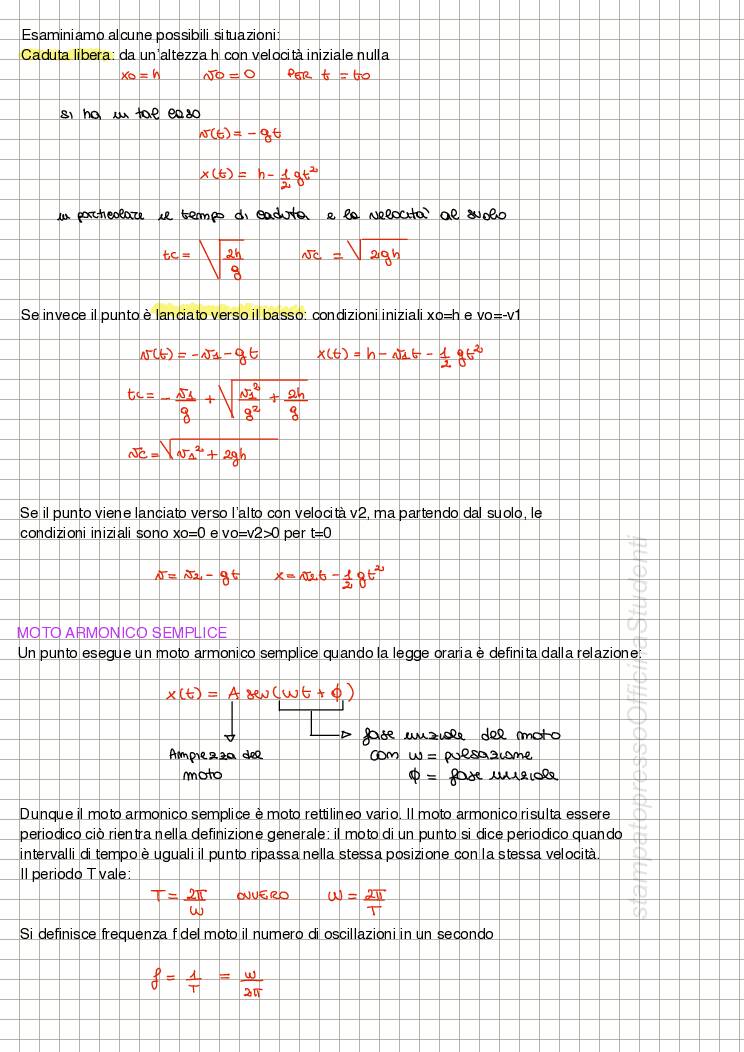 Esaminiamo alcune possibili situazioni:
Caduta libera: da un'altezza h con velocità iniziale nulla
xo = h vo = 0 PER t = to
si ha in tal caso
v(t) = - gt
x(t) = h - 1/2 gt²
in particolare il tempo di caduta e la velocità al suolo
tc = √(2h/g) vc = √(2gh)
Se invece il punto è lanciato verso il basso: condizioni iniziali xo=h e vo=-v1
v(t) = - v1 - gt x(t) = h - v1t - 1/2 gt²
tc = - v1/g + √(v1²/g² + 2h/g)
vc = √(v1² + 2gh)
Se il punto viene lanciato verso l'alto con velocità v2, ma partendo dal suolo, le
condizioni iniziali sono xo=0 e vo=v2>0 per t=0
v = v2 - gt x = v2t - 1/2 gt²
MOTO ARMONICO SEMPLICE
Un punto esegue un moto armonico semplice quando la legge oraria è definita dalla relazione:
x(t) = A sen(ωt + ϕ)
Ampiezza del
moto
fase iniziale del moto
com ω = pulsazione
ϕ = fase iniziale
Dunque il moto armonico semplice è moto rettilineo vario. Il moto armonico risulta essere
periodico ciò rientra nella definizione generale: il moto di un punto si dice periodico quando
intervalli di tempo è uguali il punto ripassa nella stessa posizione con la stessa velocità.
Il periodo T vale:
T = 2π/ω OVVERO ω = 2π/T
Si definisce frequenza f del moto il numero di oscillazioni in un secondo
f = 1/T = ω/2π
stampatopressoOfficinaStudenti